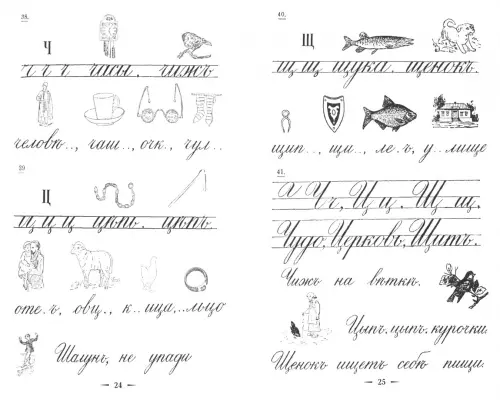 38.
Ч
ч ч ч часы. чижъ.
человѣ.., чаш.., очк.., чул..
39
Ц
ц ц ц цѣпь. цѣпъ.
оте.ъ, овц.., к..ица, ..льцо
Шалунъ, не упади
— 24 —
40.
Щ
щ щ щука. щенокъ.
щип..., щи.., ле.ъ, у..лище
41.
Ч ч, Ц ц. Щ щ.
Чудо, Церковь, Щитъ.
Чижъ на вѣткѣ.
Цыпъ. цыпъ. курочки.
Щенокъ ищетъ себѣ пищи.
— 25 —